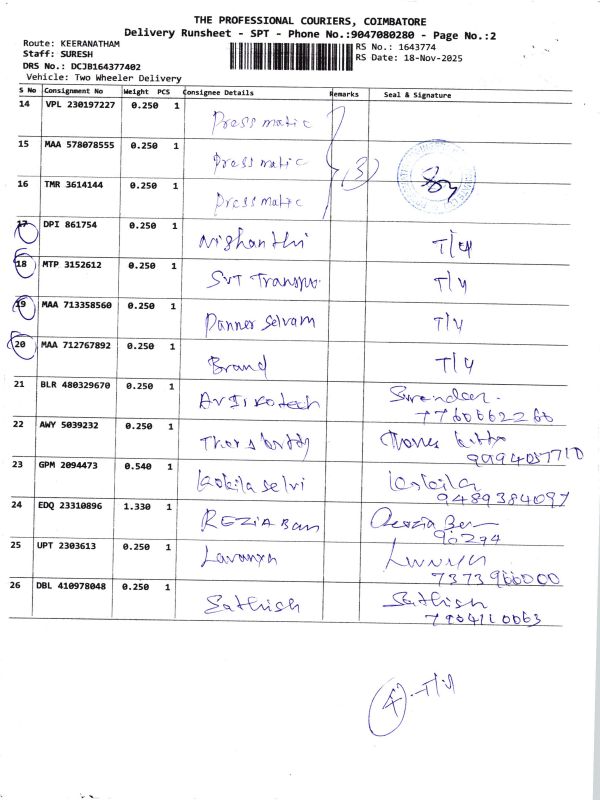 THE PROFESSIONAL COURIERS, COIMBATORE
Delivery Runsheet - SPT - Phone No.:9047080280 - Page No.:2
Route: KEERANATHAM
RS No.: 1643774
Staff: SURESH
RS Date: 18-Nov-2025
DRS No.: DCJB164377402
Vehicle: Two Wheeler Delivery
S No Consignment No Weight PCS Consignee Details Remarks Seal & Signature
14 VPL 230197227 0.250 1 Pressmatic
15 MAA 578078555 0.250 1 Pressmatic (3)
16 TMR 3614144 0.250 1 Pressmatic
17 DPI 861754 0.250 1 Nishanthi T/4
18 MTP 3152612 0.250 1 SVT Transpo T/4
19 MAA 713358560 0.250 1 Panner Selvam T/4
20 MAA 712767892 0.250 1 Brand T/4
21 BLR 480329670 0.250 1 Surendar.
7760662266
22 AWY 5039232 0.250 1
9994057710
23 GPM 2094473 0.540 1 Kokila Selvi Kokila
9489384097
24 EDQ 23310896 1.330 1 REZIA Ban
90294
25 UPT 2303613 0.250 1 Lavanya
7373966000
26 DBL 410978048 0.250 1 Sathish Sathish
7904110063
4 - T/4